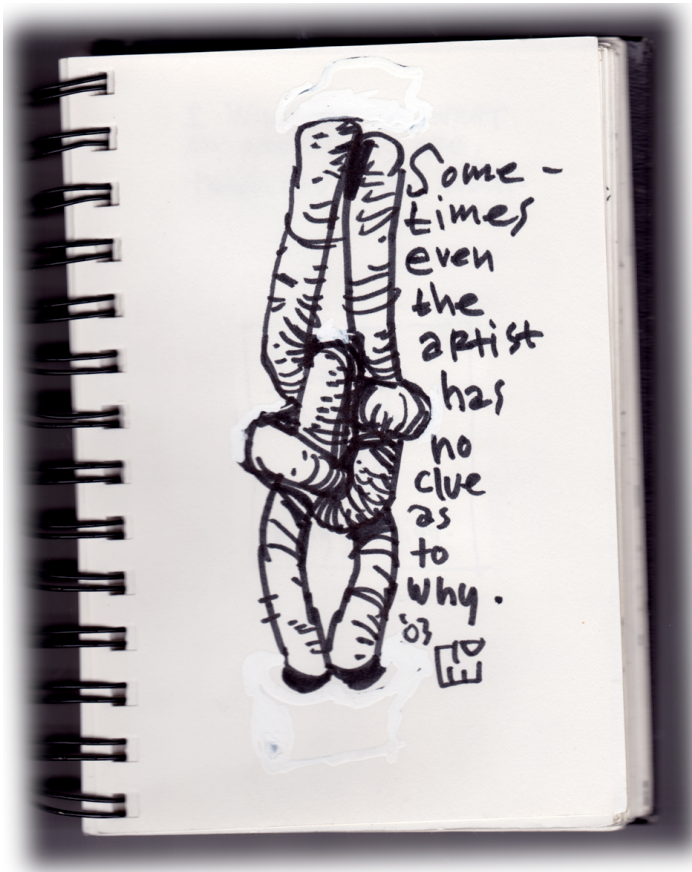 Some-
times
even
the
artist
has
no
clue
as
to
why.
'03